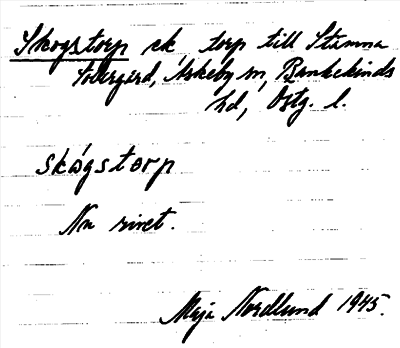 Skogstorp ck torp till Stämna
Sörgård, Askeby sn, Bankekinds
hd, Östg. l.
skógstorp
Nu rivet.
Maja Nordlund 1945.